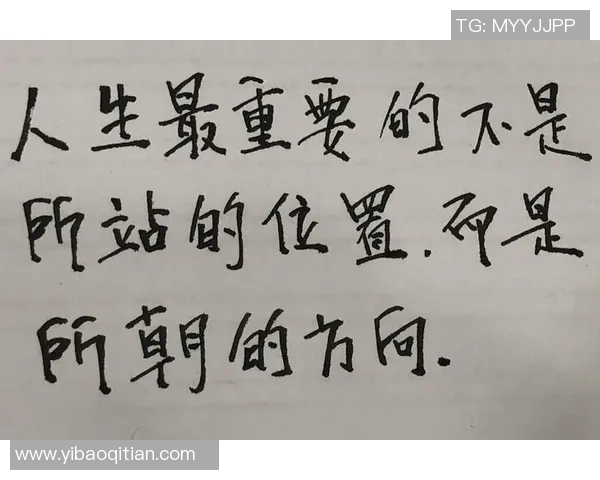 TG: MYYJJPP
人生最重要的不是
所站的位置.而是
所朝的方向.
www.yibaoqitian.com